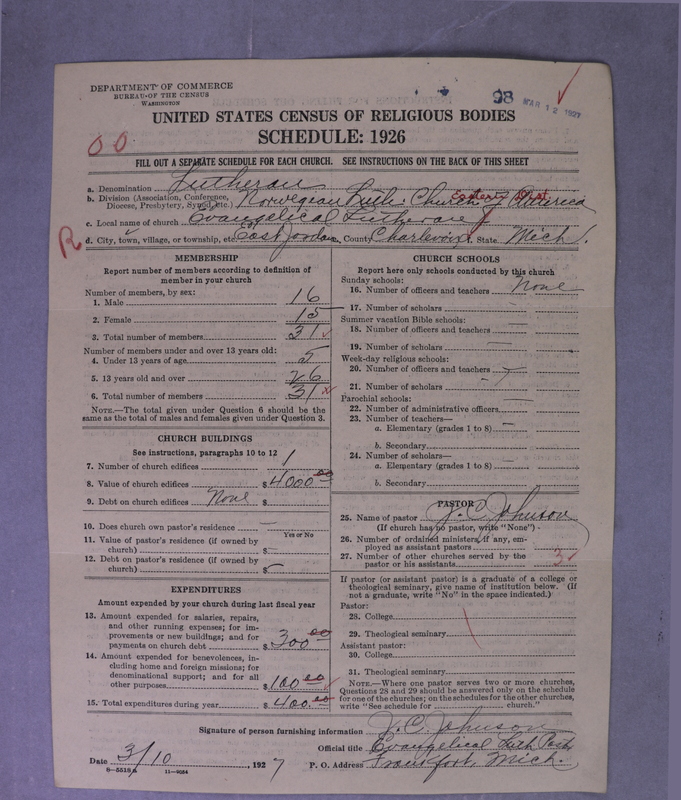 DEPARTMENT OF COMMERCE
BUREAU OF THE CENSUS
WASHINGTON
98 MAR 12 1927
UNITED STATES CENSUS OF RELIGIOUS BODIES
SCHEDULE: 1926
00
FILL OUT A SEPARATE SCHEDULE FOR EACH CHURCH. SEE INSTRUCTIONS ON THE BACK OF THIS SHEET
a. Denomination Lutheran
b. Division (Association, Conference, Diocese, Presbytery, Synod, etc.) Norwegian Luth. Church of America
c. Local name of church Evangelical Lutheran
R
d. City, town, village, or township, etc. East Jordan, County Charlevoix, State Mich.
MEMBERSHIP
Report number of members according to definition of
member in your church
Number of members, by sex:
1. Male 16
2. Female 15
3. Total number of members 31
Number of members under and over 13 years old:
4. Under 13 years of age 5
5. 13 years old and over 26
6. Total number of members 31
NOTE.—The total given under Question 6 should be
same as the total of males and females given under Question 3.
CHURCH BUILDINGS
See instructions, paragraphs 10 to 12
7. Number of church edifices 1
8. Value of church edifices $ 4000.00
9. Debt on church edifices None $
10. Does church own pastor's residence —
Yes or No
11. Value of pastor's residence (if owned by
church) $ —
12. Debt on pastor's residence (if owned by
church) $
EXPENDITURES
Amount expended by your church during last fiscal year
13. Amount expended for salaries, repairs,
and other running expenses; for im-
provements or new buildings; and for
payments on church debt $ 300.00
14. Amount expended for benevolences, in-
cluding home and foreign missions; for
denominational support; and for all
other purposes $ 100.00
15. Total expenditures during year $ 400.00
CHURCH SCHOOLS
Report here only schools conducted by this church
Sunday schools:
16. Number of officers and teachers None
17. Number of scholars —
Summer vacation Bible schools:
18. Number of officers and teachers —
19. Number of scholars —
Week-day religious schools:
20. Number of officers and teachers
21. Number of scholars
Parochial schools:
22. Number of administrative officers
23. Number of teachers—
a. Elementary (grades 1 to 8)
b. Secondary
24. Number of scholars—
a. Elementary (grades 1 to 8)
b. Secondary
PASTOR
25. Name of pastor J. C. Johnson
(If church has no pastor, write "None")
26. Number of ordained ministers, if any, em-
ployed as assistant pastors
27. Number of other churches served by the
pastor or his assistants 3
If pastor (or assistant pastor) is a graduate of a college or
theological seminary, give name of institution below. (If
not a graduate, write "No" in the space indicated.)
Pastor:
28. College
29. Theological seminary
Assistant pastor:
30. College
31. Theological seminary
NOTE.—Where one pastor serves two or more churches,
Questions 28 and 29 should be answered only on the schedule
for one of the churches; on the schedules for the other churches,
write "See schedule for church."
Signature of person furnishing information J. C. Johnson
Official title Evangelical Luth. Pastor
Date 3/10, 1927 P. O. Address Frankfort, Mich.
8—5518a 11—9054